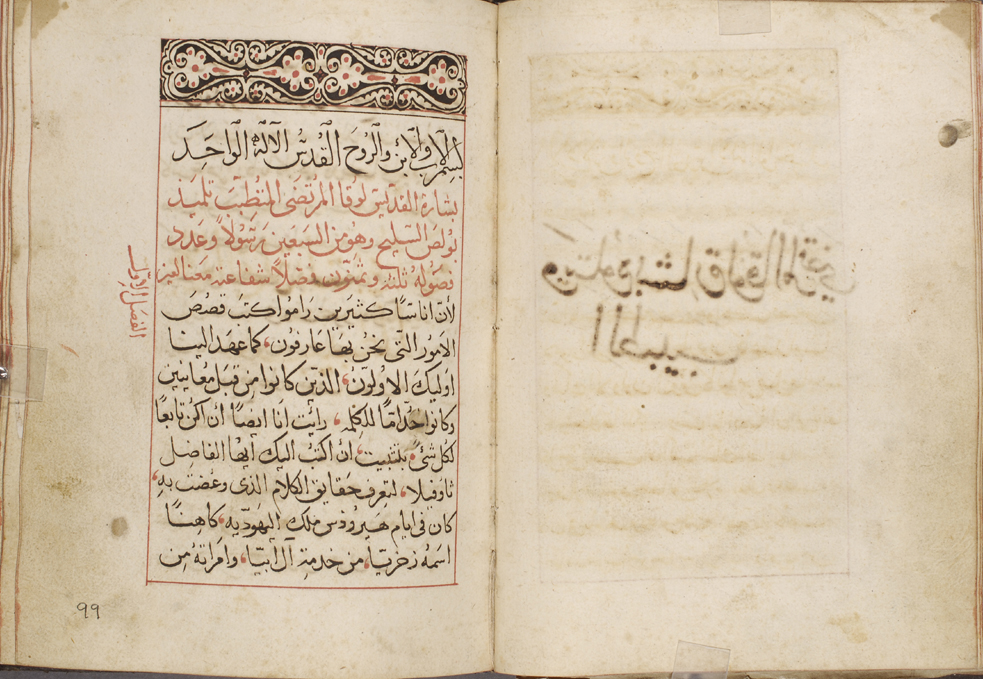 ويتلوه بشارة لوقا المرتضي
الطبيب
بسم الاب والابن والروح القدس الاله الواحد
بشارة القديس لوقا المرتضى المتطبب تلميذ
بولص السليح وهو من السبعين رسولاً وعدد
فصوله ثلثة وثمنون فصلاً شفاعته معنا امين
الفصل الاول
لأن اناسًا كثيرين راموا كتب قصص
الامور التي نحن بها عارفون، كما عهد الينا
اوليك الاولون، الذين كانوا من قبل معاينين
وكانوا خدامًا للكلمه، رايت انا ايضًا ان اكن تابعًا
لكل شئ بتثبيت، ان اكتب اليك ايها الفاضل
ثاوفيلا، لتعرف حقايق الكلام الذي وعضت به،
كان في ايام هيرودس ملك اليهوديه، كاهنًا
اسمه زخريا، من خدمة آل ابيا، وامراته من
99